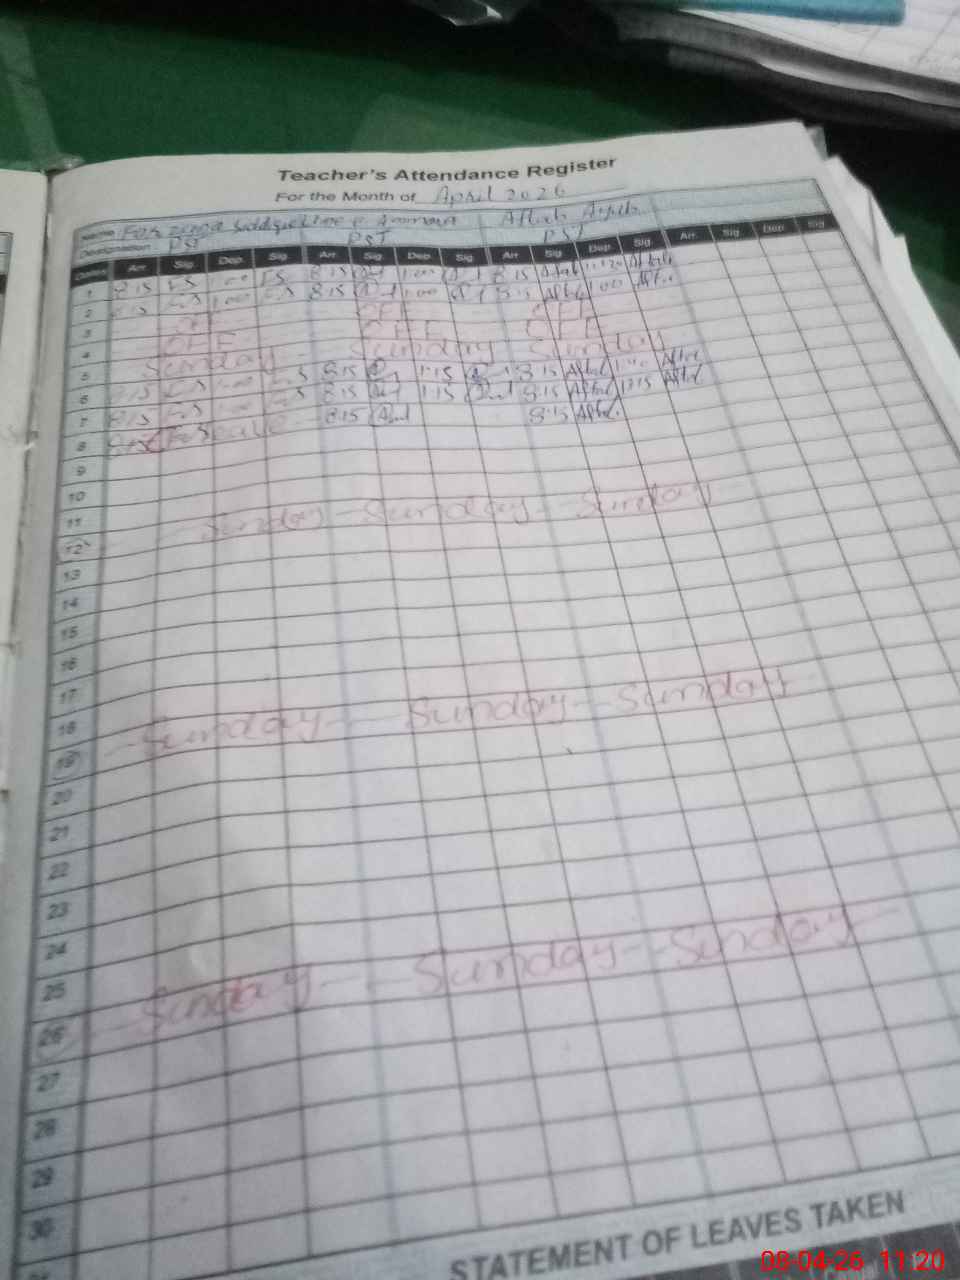 Teacher's Attendance Register
For the Month of April 2026
Name Farzana Siddiqui Aftab Ayub
Designation PST PST PST
Dates Arr. Sig. Dep. Sig. Arr. Sig. Dep. Sig. Arr. Sig. Dep. Sig. Arr. Sig. Dep. Sig.
1 8:15 FS 1:00 FS 8:15 1:00 8:15 Aftab Aftab
2 8:15 FS 1:00 FS 8:15 1:00 8:15 Aftab 1:00 Aftab
3 OFF OFF OFF
4 OFF OFF OFF
5 Sunday Sunday Sunday
6 8:15 FS 1:00 FS 8:15 1:15 8:15 Aftab Aftab
7 8:15 FS 1:00 FS 8:15 1:15 8:15 Aftab 1:15 Aftab
8 8:15 leave 8:15 8:15 Aftab
9
10
11
12 Sunday Sunday Sunday
13
14
15
16
17
18
19 Sunday Sunday Sunday
20
21
22
23
24
25
26 Sunday Sunday Sunday
27
28
29
30
STATEMENT OF LEAVES TAKEN
08-04-26 11:20